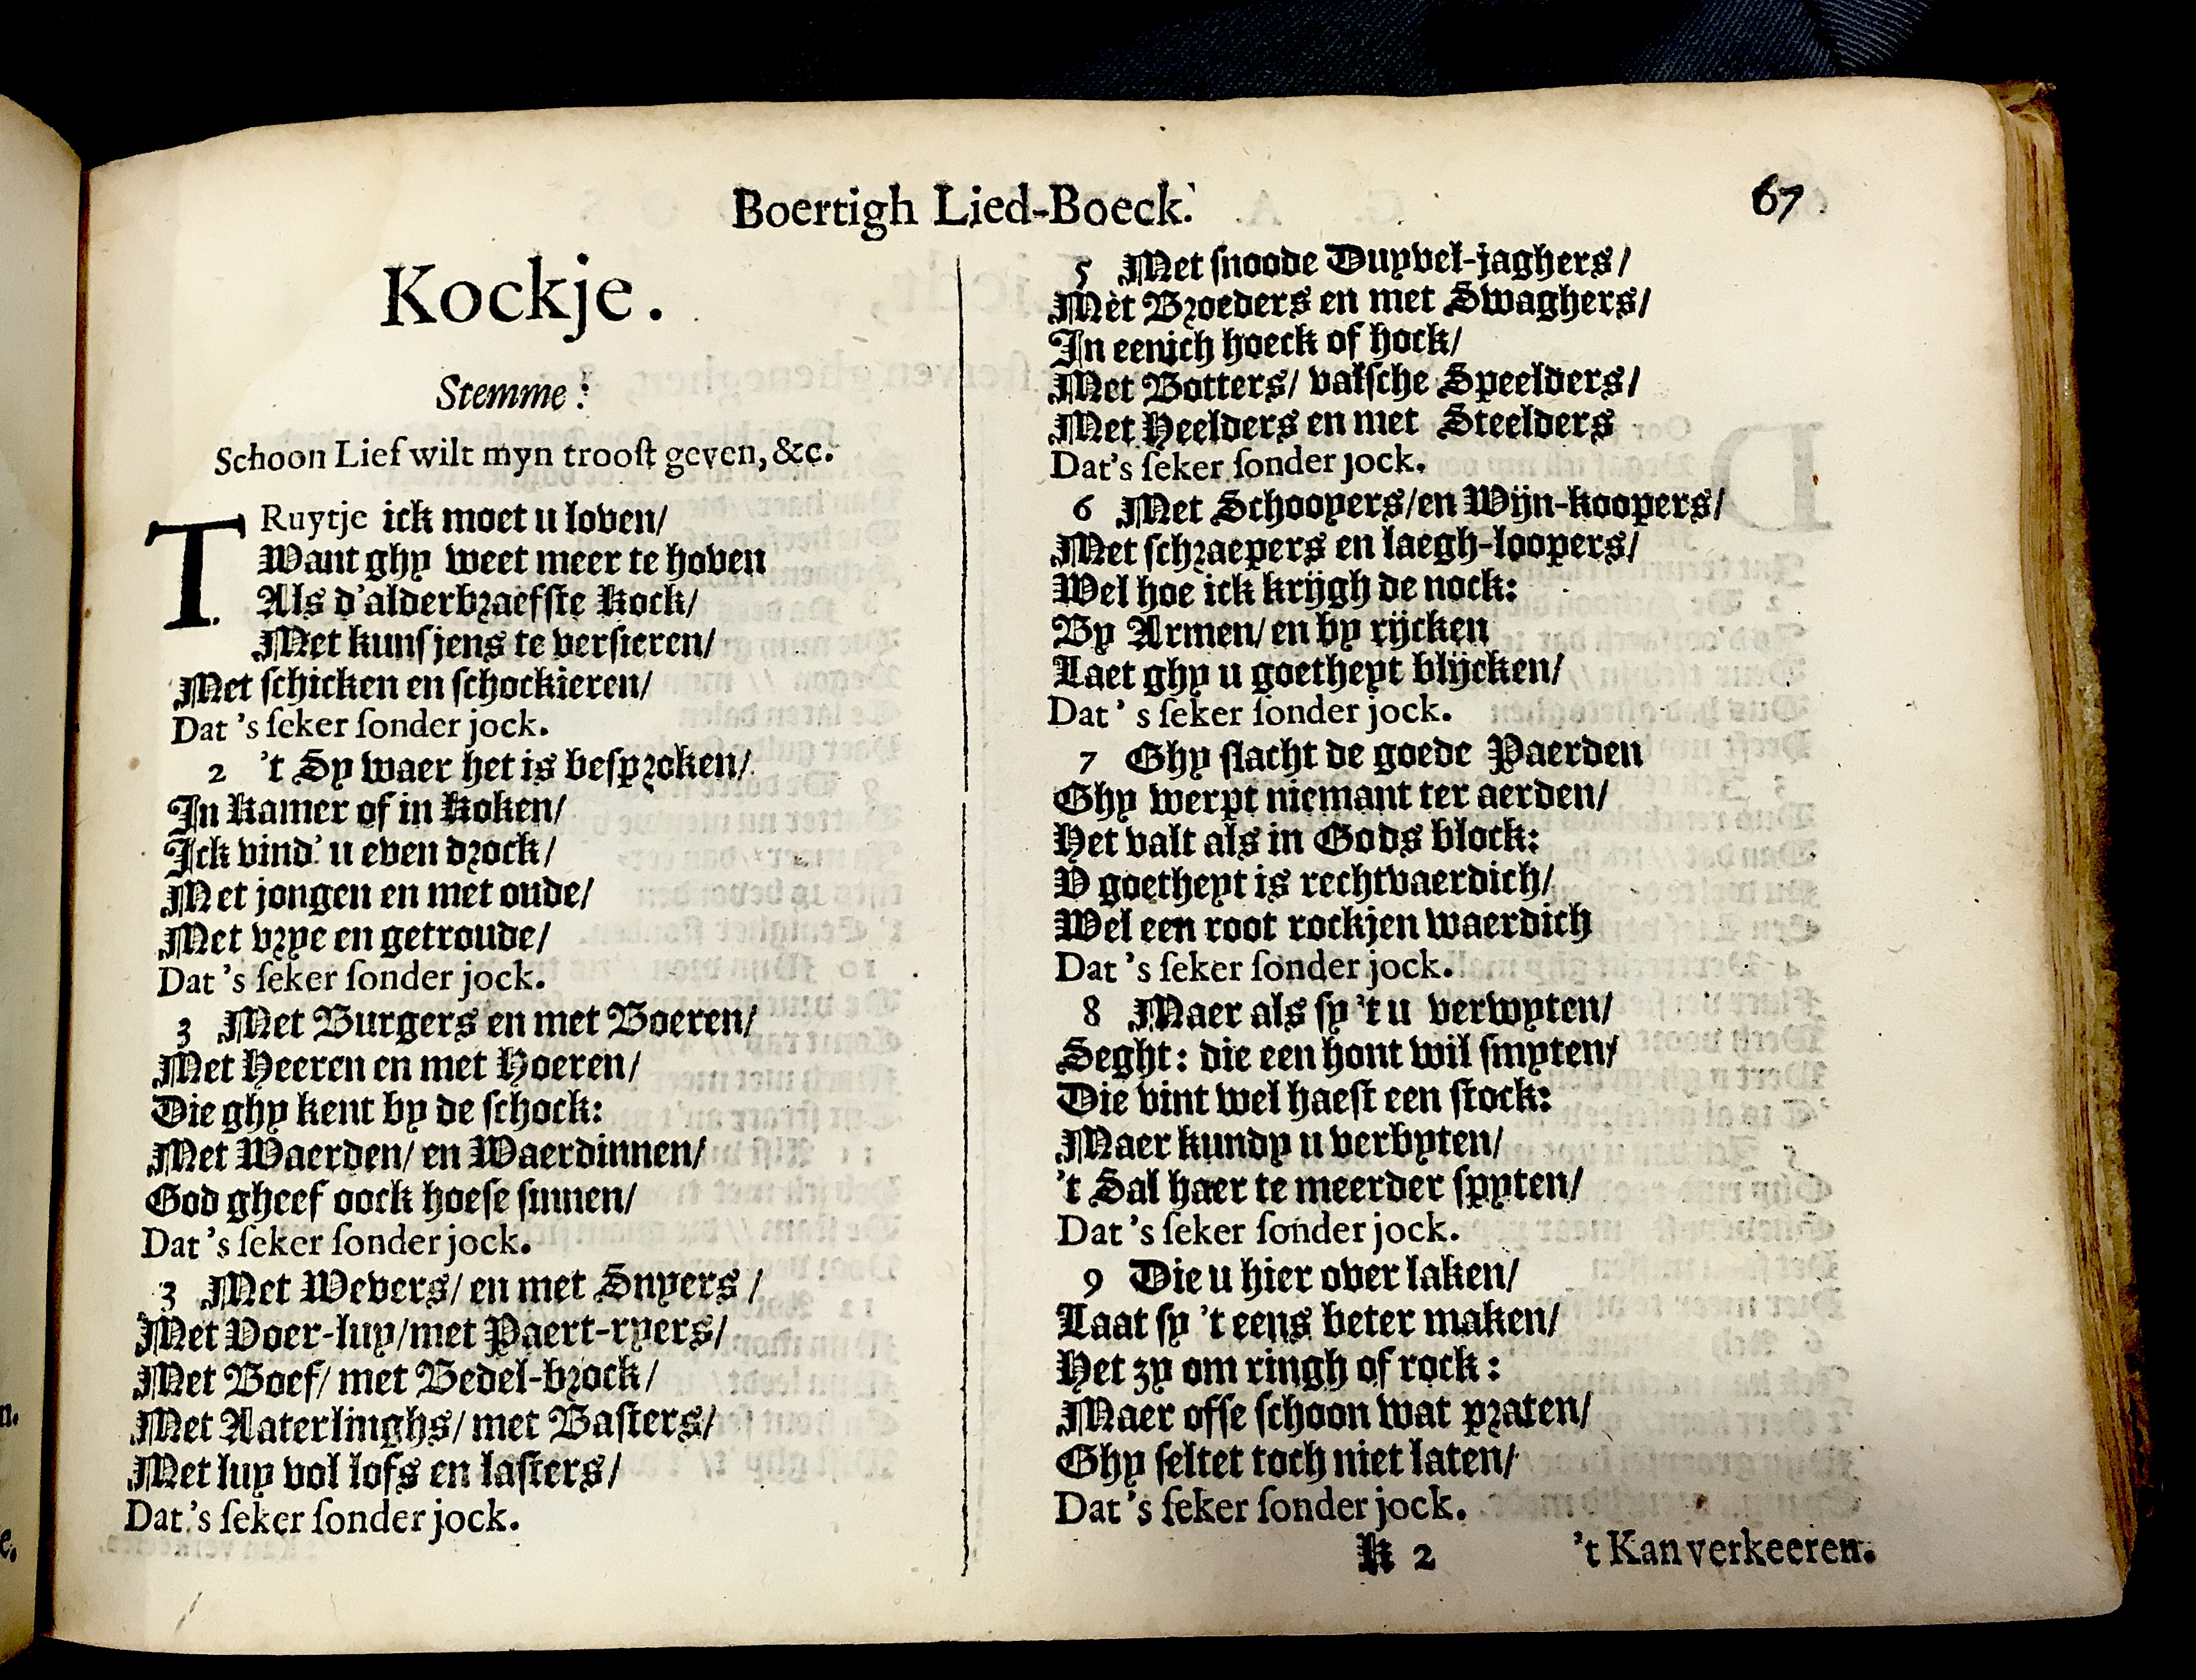 Boertigh Lied-Boeck.
67
Kockje.
Stemme:
Schoon Lief wilt myn trooſt geven, &c.
TRuytje ick moet u loven/
Want ghy weet meer te hoven
Als d'alderbraefſte Kock/
Met kunſjens te verſieren/
Met ſchicken en ſchockieren/
Dat 's ſeker ſonder jock.
2 't Sy waer het is beſproken/
In Kamer of in Koken/
Ick vind' u even drock/
Met jongen en met oude/
Met vrye en getroude/
Dat 's ſeker ſonder jock.
3 Met Burgers en met Boeren/
Met Heeren en met Hoeren/
Die ghy kent by de ſchock:
Met Waerden/ en Waerdinnen/
God gheef oock hoeſe ſinnen/
Dat 's ſeker ſonder jock.
3 Met Wevers/ en met Snyers/
Met Voer-luy/met Paert-ryers/
Met Boef/ met Bedel-brock/
Met Aaterlinghs/ met Baſters/
Met luy vol lofs en laſters/
Dat 's ſeker ſonder jock.
5 Met ſnoode Duyvel-jaghers/
Met Broeders en met Swaghers/
In eenich hoeck of hock/
Met Botters/ valſche Speelders/
Met Heelders en met Steelders
Dat's ſeker ſonder jock.
6 Met Schooyers/en Wijn-koopers/
Met ſchraepers en laegh-loopers/
Wel hoe ick krijgh de nock:
By Armen/ en by rijcken
Laet ghy u goetheyt blijcken/
Dat' s ſeker ſonder jock.
7 Ghy ſlacht de goede Paerden
Ghy werpt niemant ter aerden/
Het valt als in Gods block:
V goetheyt is rechtvaerdich/
Wel een root rockjen waerdich
Dat 's ſeker ſonder jock.
8 Maer als ſy 't u verwyten/
Seght: die een hont wil ſmyten/
Die vint wel haeſt een ſtock:
Maer kundy u verbyten/
't Sal haer te meerder ſpyten/
Dat 's ſeker ſonder jock.
9 Die u hier over laken/
Laat ſy 't eens beter maken/
Het zy om ringh of rock:
Maer ofſe ſchoon wat praten/
Ghy ſeltet toch niet laten/
Dat 's ſeker ſonder jock.
K 2
't Kan verkeeren.
n.
e.